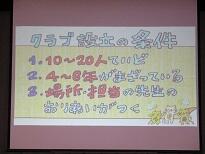 クラブ設立の条件
1.10〜20人ていど
2.4〜6年がまざっている
3.場所・担当の先生の
おりあいがつく